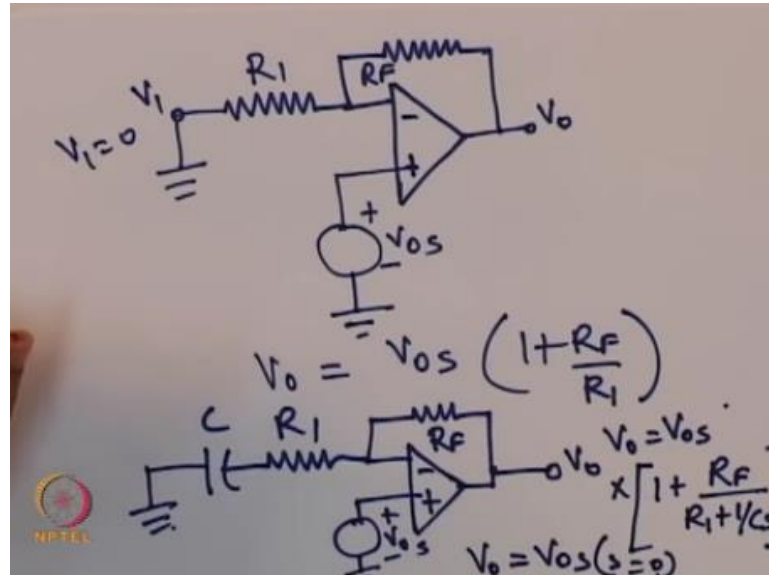 R1
RF
V1
V1=0
-
+
V0
+
VOS
-
V0 = VOS (1+RF/R1)
C
R1
RF
-
+
V0
+
VOS
-
V0=VOS
×[1+RF/R1+1/CS
V0=VOS(s=0)
NPTEL